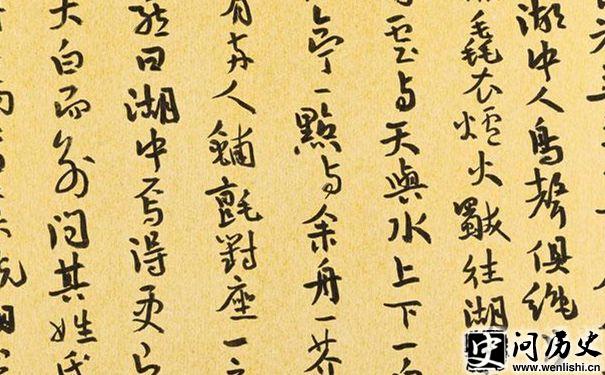 湖中人鳥聲俱絶
毳衣爐火獨往湖
雲与天與水上下一白
亭一點与余舟一芥
有兩人鋪氈對座一
曰湖中焉得更
大白而別問其姓氏
问历史
www.wenlishi.cn